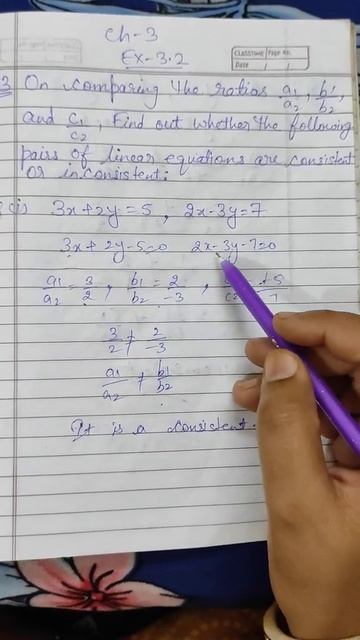 Ch-3
Ex-3.2
CLASSTIME Page No.
Date
3 On comparing the ratios a1/a2, b1/b2,
and c1/c2, Find out whether the following
pairs of linear equations are consistent
or inconsistent:
(i) 3x+2y=5, 2x-3y=7
3x+2y-5=0 2x-3y-7=0
a1/a2 = 3/2, b1/b2 = 2/-3,
3/2 ≠ 2/-3
a1/a2 ≠ b1/b2
It is a consistent.